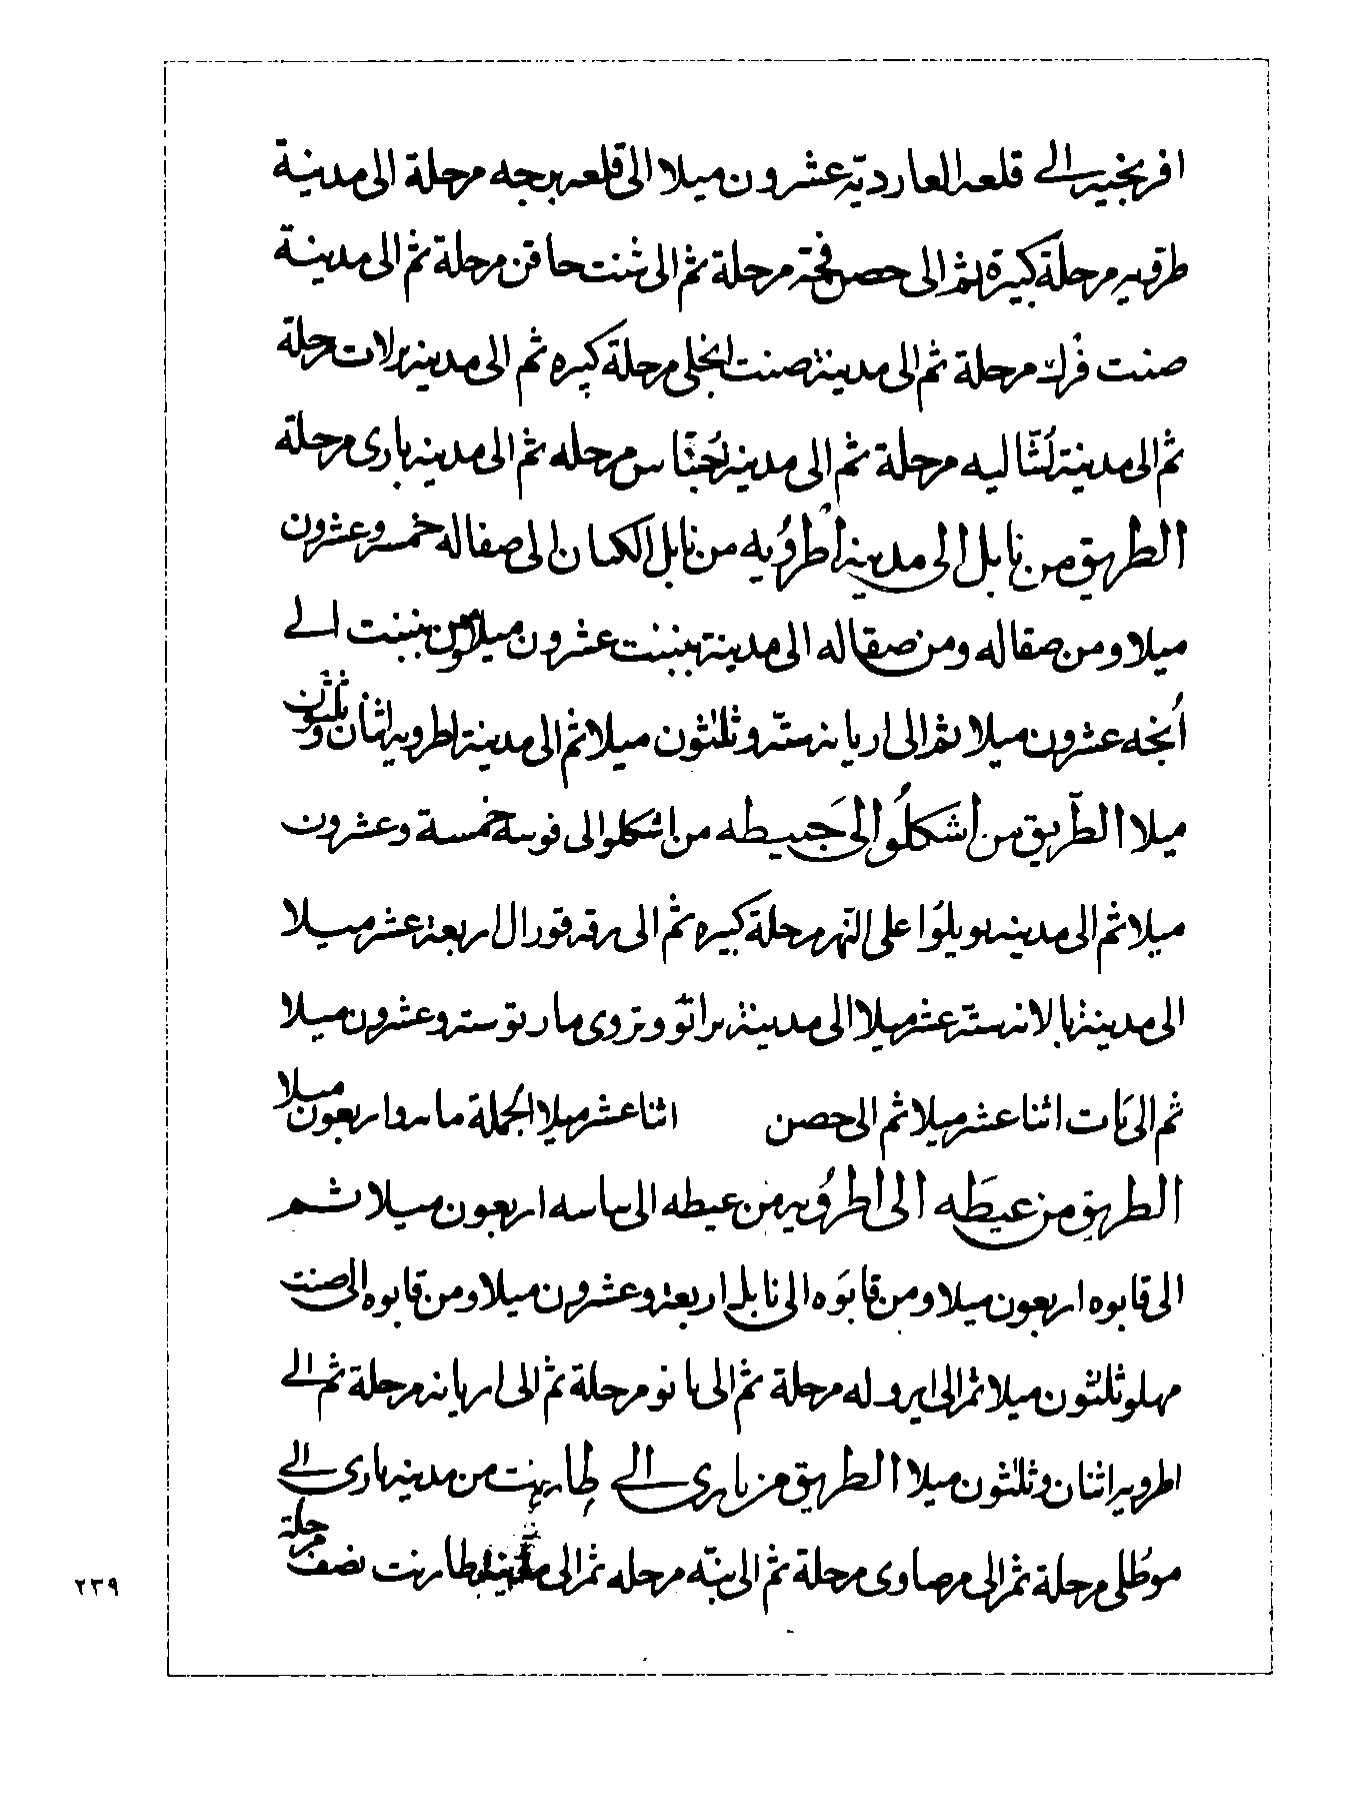 افريجيه الى قلعه العارديّه عشرون ميلا الى قلعه برجه مرحلة الى مدينة
طرقيه مرحلة كبيرة ثم الى حصن فجّه مرحلة ثم الى شنت حاقن مرحلة ثم الى مدينة
صنت فرك مرحلة ثم الى مدينة صنت انجلى مرحلة كبيره ثم الى مدينة برلات مرحلة
ثم الى مدينة لُشّاليه مرحلة ثم الى مدينة نُجنّاس مرحله ثم الى مدينه بارى مرحلة
الطريق من نابل الى مدينة اطرُويه من نابل الكتان الى صقاله خمسة وعشرون
ميلا ومن صقاله ومن صقاله الى مدينة بنبنت عشرون ميلا ومن بنبنت الى
اُنجه عشرون ميلا ثم الى اريانه ستّه وثلثون ميلا ثم الى مدينة اطرويه اثنان وثلثون
ميلا الطّريق من اشكلُو الى جَبيطه من اشكلوا الى قونسه خمسة وعشرون
ميلا ثم الى مدينه بويلُوا على النّهر مرحلة كبيره ثم الى رقه قورال اربعة عشر ميلا
الى مدينة بالانه ستّة عشر ميلا الى مدينة براتو وتروى مارتو ستة وعشرون ميلا
ثم الى تات اثنا عشر ميلا ثم الى حصن اثنا عشر ميلا الجملة مايه واربعون ميلا
الطريق من غيطَه الى اطرُويه من غيطه الى ساسه اربعون ميلا ثم
الى قابوه اربعون ميلا ومن قابوَه الى نابل اربعة وعشرون ميلا ومن قابوه الى صنت
مهلو ثلثون ميلا ثم الى ايروله مرحلة ثم الى بانو مرحلة ثم الى اريانه مرحلة ثم الى
اطرويه اثنان وثلثون ميلا الطريق من بارى الى طارنت من مدينه بارى الى
موطُلى مرحلة ثم الى مرصاوى مرحلة ثم الى بنّه مرحله ثم الى مدينة طارنت نصف مرحلة
٢٣٩